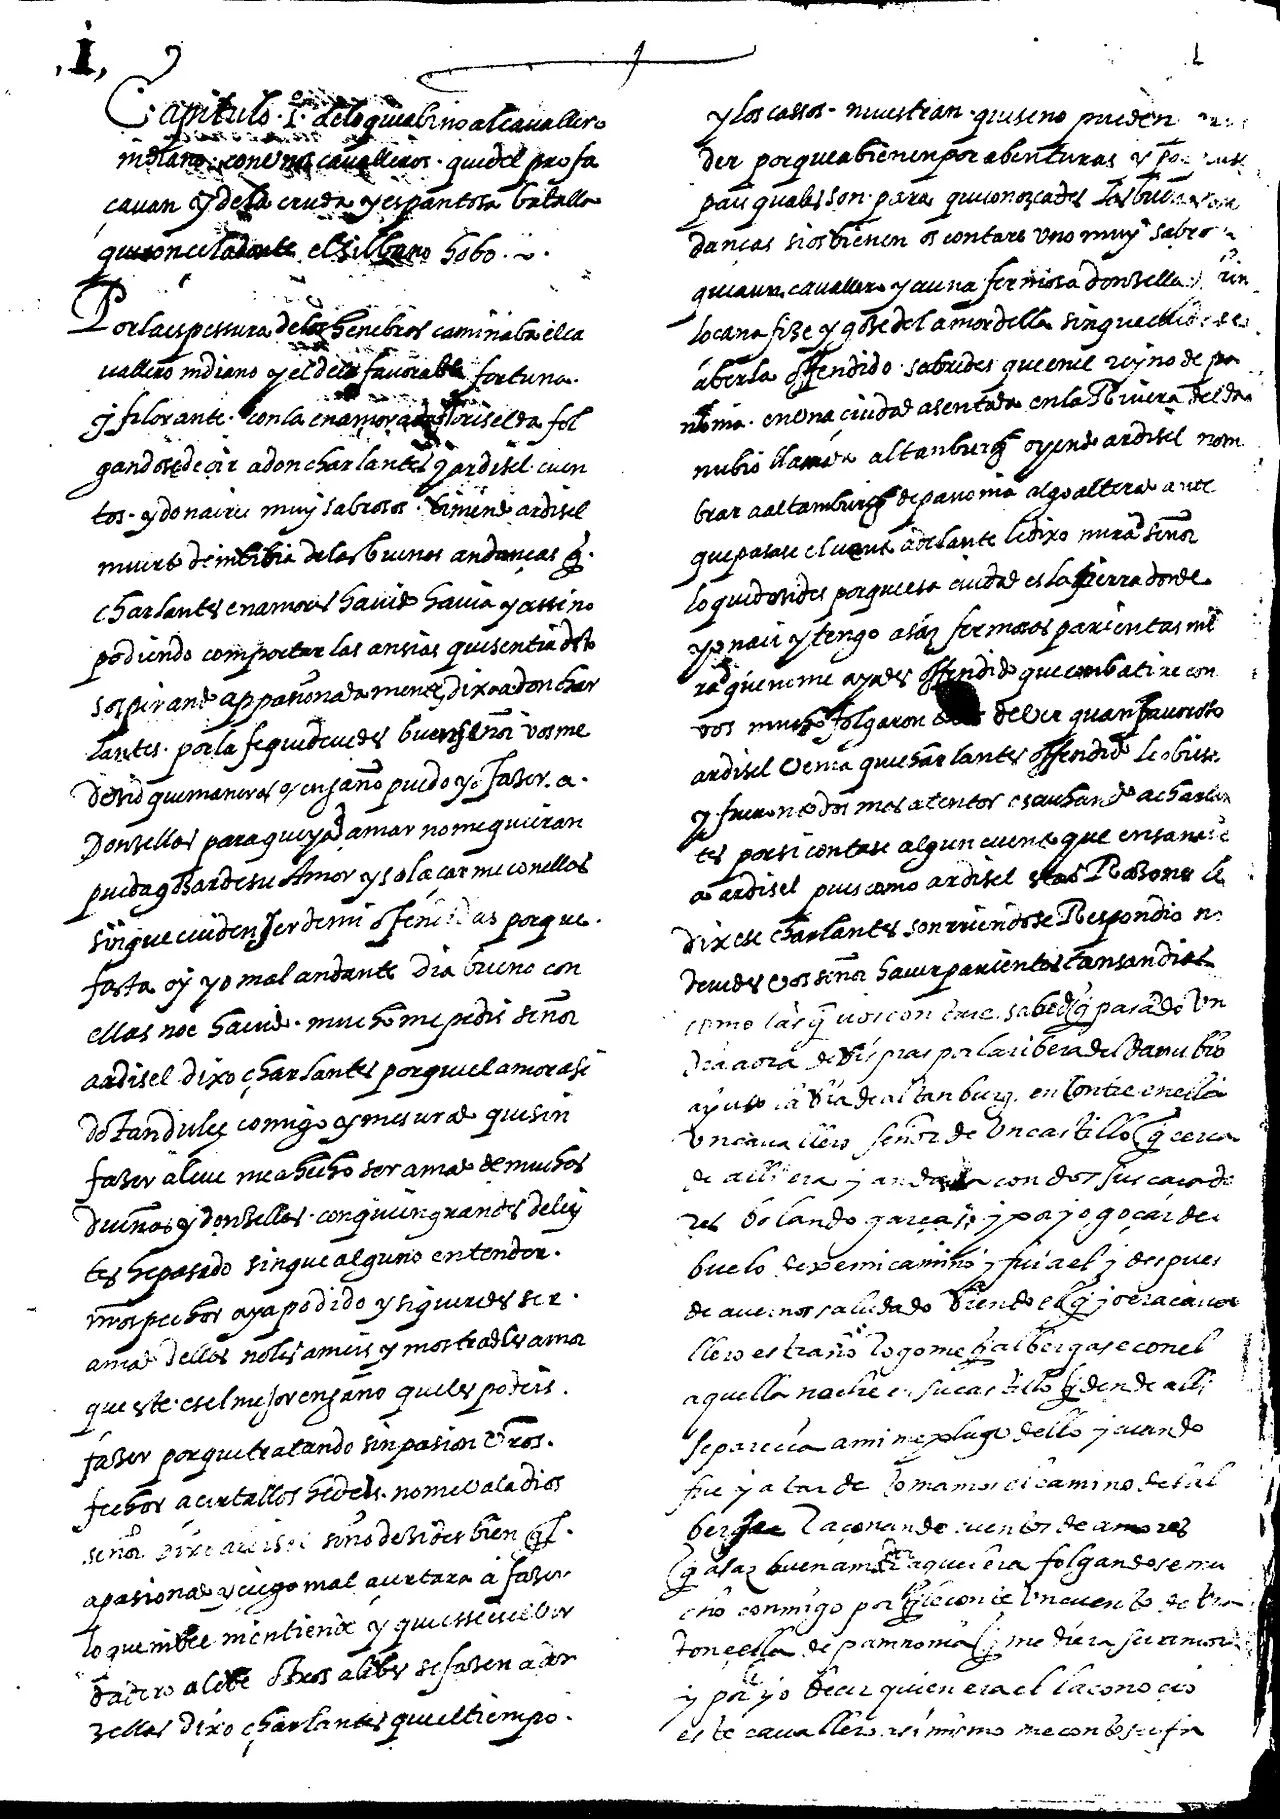 .i.
1
Capitulo .1º. de lo que abino al cavallero
indiano con unos cavalleros. que del profa
cavan y de la cruda y espantosa batalla
que con celadonte el silbano hobo.
Por la espessura de los henebros caminaba el ca
vallero indiano y el de la favorable fortuna.
y filorante. con la enamorada griselda fol
gandose de oir a don charlantes y ardisel. cuen
tos. y donaires muy sabrosos. viniendo ardisel
muerto de imbibia de las buenas andanças q̃.
charlantes en amores havido havia y assi no
podiendo comportar las ansias que sentia desto
sospirando appasionadamente dixo a don char
lantes. por la fe que devedes buen señor vos me
desid que maneras y engaño puedo yo fazer. a.
donsellas para que ya q̃ amar no me quieran
pueda gosar de su Amor y solaçarme con ellas
sin que cuiden ser de mi ofendidas porque.
fasta oy yo mal andante dia bueno con
ellas no e havido. mucho me pedis señor
ardisel dixo charlantes porque el amor a si
do tan dulçe comigo y mesurado que sin
fazer aleve me a hecho ser amado de muchas
dueñas y donsellas. con quien grandes deley
tes he pasado sin que alguno entender.
nr̃os pechos aya podido y si queredes ser.
amado dellas no les ameis y mostradles amor
que este es el mejor engaño que les podeis.
fazer porque tratando sin pasion vr̃os.
fechos açertallos hedes. no me vala dios
señor dixo ardisel sino desides bien q̃ l.
apasionado y ciego mal açertara a faser
lo que
dadero aleve otros alebes se fasen a don
zellas dixo charlantes que el tiempo.
y los cassos. muestran. que se no pueden
der porque abienen por abenturas y
pais quales son. para que conoscades las buenas an
danças si os bienen os contare uno muy sabroso
que a un cavallero y a una fermosa donsella
locana fize y gose del amor della sin que
aberla offendido. sabredes que en el reyno de pa
nonia. en una ciudad asentada en la Rivera del da
nubio llamada altanburg oyendo ardisel nom
brar a altamburg de panonia algo alterado ante
que pasase el cuento adelante le dixo mirad señor
lo que desides porque esa ciudad es la tierra donde
yo naci y tengo asaz fermosas parientas mi
rad que no me ayades offendido que combatire con
vos mucho folgaron de ver quan favoroso
ardisel venia que charlantes offendido le obiese
y fueron todos mas atentos escuchando a charlan
tes por si contase algun cuento que ensandesiese
a ardisel pues como ardisel estas Rasones le
dixese charlantes sonrriendose Respondio no
devedes vos señor haver parientas tan sandias
como las q̃ vos contare. sabed q̃ pasado un
dia a ora de visperas por la ribera del danubio
ayuso la via de altanburg. en contre en ella
un cavallero señor de un castillo q̃ cerca
de alli era y andaba con dos sus caçado
res bolando garças y por yo goçar del
buelo dexe mi camino y fui a el y despues
de avernos saludado viendo el q̃ yo era cava
llero estraño rogome q̃ albergase con el
aquella noche en su castillo q̃ dende alli
se parecia a mi me plugo dello y quando
fue ya tarde tomamos el camino del al
bergue raçonando cuentos de amores
q̃ asaz buena materia aquella era folgandose mu
cho conmigo por q̃ le conte un cuento de una
donçella de pannonia q̃ me diera su amor
y por yo decir quien era el la conocio
este cavallero asi mismo me conto su fa